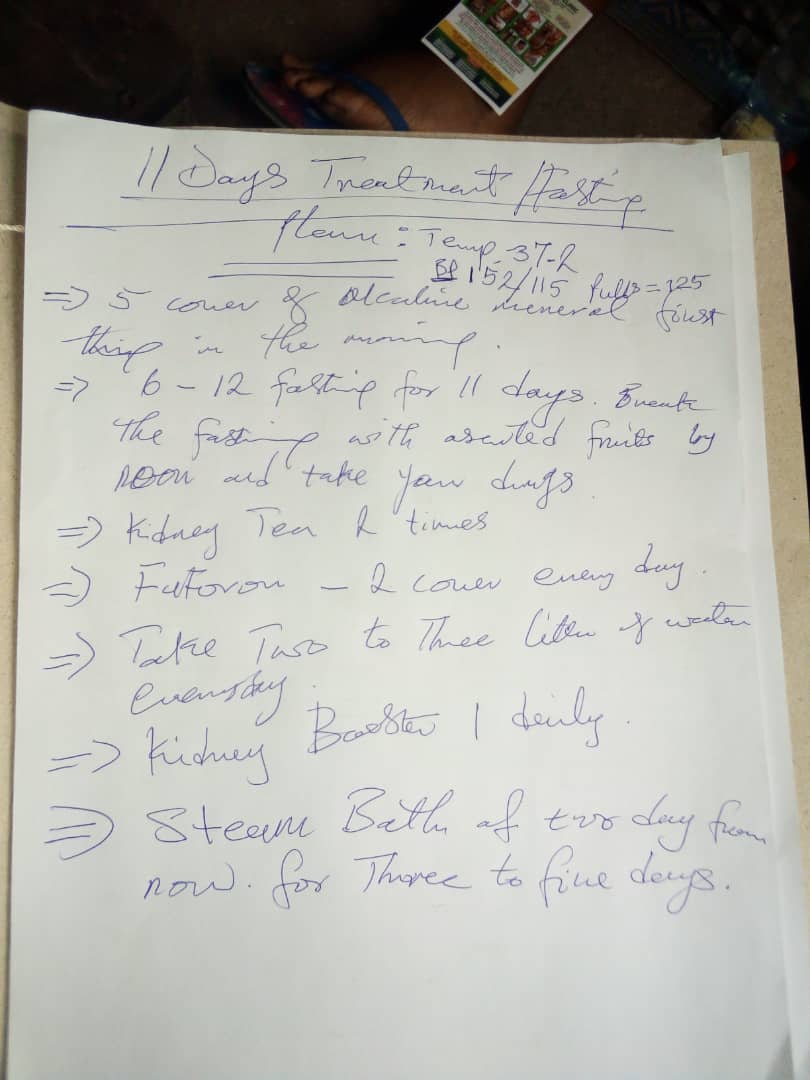 11 Days Treatment / Fasting
Plan : Temp 37.2
BP 152/115 Pulls = 125
=> 5 cover of Alcaline meneral first
thing in the morning.
=> 6 - 12 fasting for 11 days. Break
the fasting with asorted fruits by
NOON and take your drugs
=> Kidney Tea 2 times
=> - 2 cover every day.
=> Take Two to Three litter of water
everyday.
=> Kidney Booster 1 daily.
=> Steam Bath of two day from
now. for Three to five days.